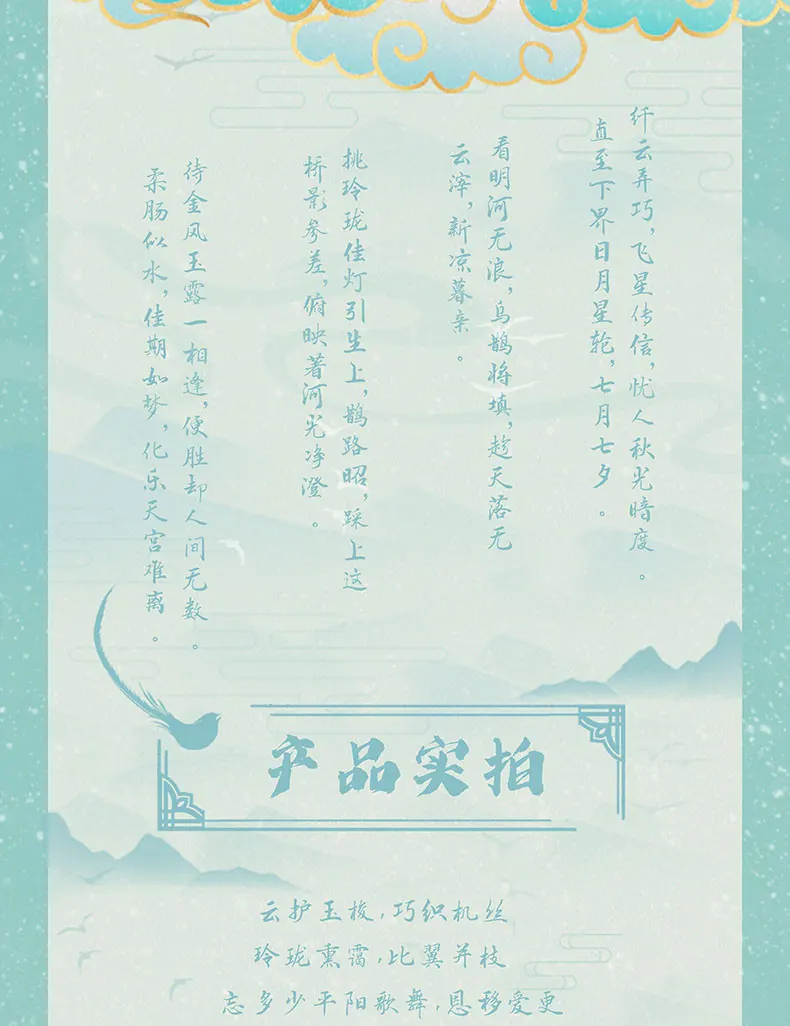 纤云弄巧，飞星传信，忧人秋光暗度。
直至下界日月星轮，七月七夕。
看明河无浪，乌鹊将填，趁天落无
云滓，新凉暮亲。
挑玲珑佳灯引生上，鹊路昭，踩上这
桥影参差，俯映著河光净澄。
待金凤玉露一相逢，便胜却人间无数。
柔肠似水，佳期如梦，化乐天宫难离。
产品实拍
云护玉梭，巧织机丝
玲珑熏霭，比翼并枝
忘多少平阳歌舞，恩移爱更